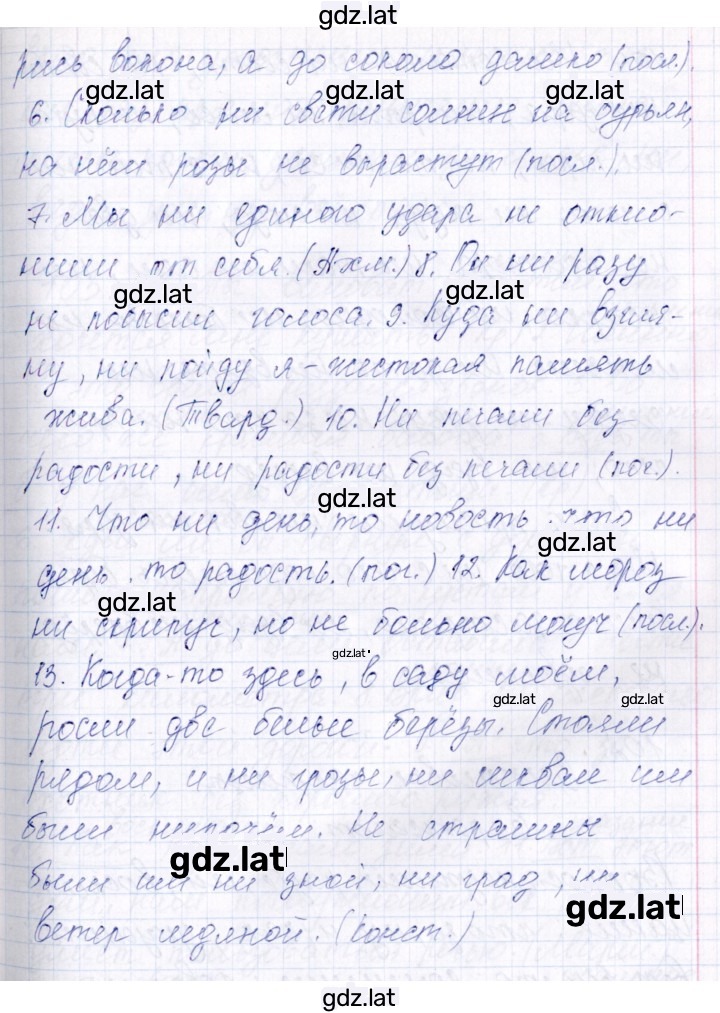 gdz.lat
рись ворона, а до сокола далеко (посл.).
gdz.lat gdz.lat
6. Сколько ни свети солнце на бурьян,
на нём розы не вырастут (посл.).
7. Мы ни единого удара не откло-
нили от себя. (Ахм.) 8. Он ни разу
gdz.lat gdz.lat
не повысил голоса. 9. Куда ни взгля-
ну, ни пойду я – жестокая память
жива. (Твард.) 10. Ни печали без
радости, ни радости без печали (пог.).
gdz.lat
11. Что ни день, то новость. что ни
gdz.lat
день. то радость. (пог.) 12. Как мороз
gdz.lat
ни скрипуч, но не больно могуч (посл.).
gdz.lat
13. Когда-то здесь, в саду моём,
gdz.lat gdz.lat
росли две белые берёзы. Стояли
рядом, и ни грозы, ни шквал им
были нипочём. Не страшны
gdz.lat
были им ни зной, ни град, ни
gdz.lat
ветер ледяной. (Конст.)
gdz.lat